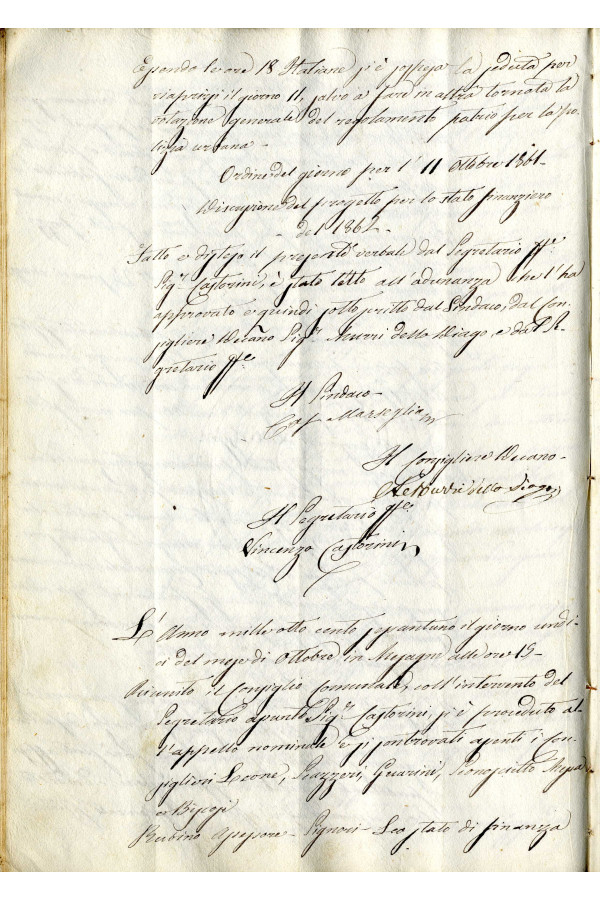 Essendo le ore 18 Italiane si è sospesa la seduta per
riaprirsi il giorno 11, salvo a fare in altra tornata la
votazione generale del regolamento patrio per la po-
lizia urbana -
Ordine del giorno per l' 11 Ottobre 1861 -
Discussione del progetto per lo stato finanziero
del 1862 -
Fatto e disteso il presente verbale dal Segretario ff.e
Sig.r Castorini, è stato letto all'adunanza che l'ha
approvato e quindi sottoscritto dal Sindaco, dal Con-
sigliere Decano Sig.r Murri dello Diago, e dal Se-
gretario ff.e
Il Sindaco
Marseglia
Il Consigliere Decano -
Murri dello Diago
Il Segretario ff.e
Vincenzo Castorini
L'Anno mille otto cento sessantuno il giorno undi-
ci del mese di Ottobre in Mesagne alle ore 15 -
Riunito il Consiglio Comunale, coll'intervento del
Segretario assunto Sig.r Castorini, si è proceduto al-
l'appello nominale e si son trovati assenti i Con-
siglieri Leone, Guarini, Profilo
Rubino Assessore - Signori - Lo stato di finanza